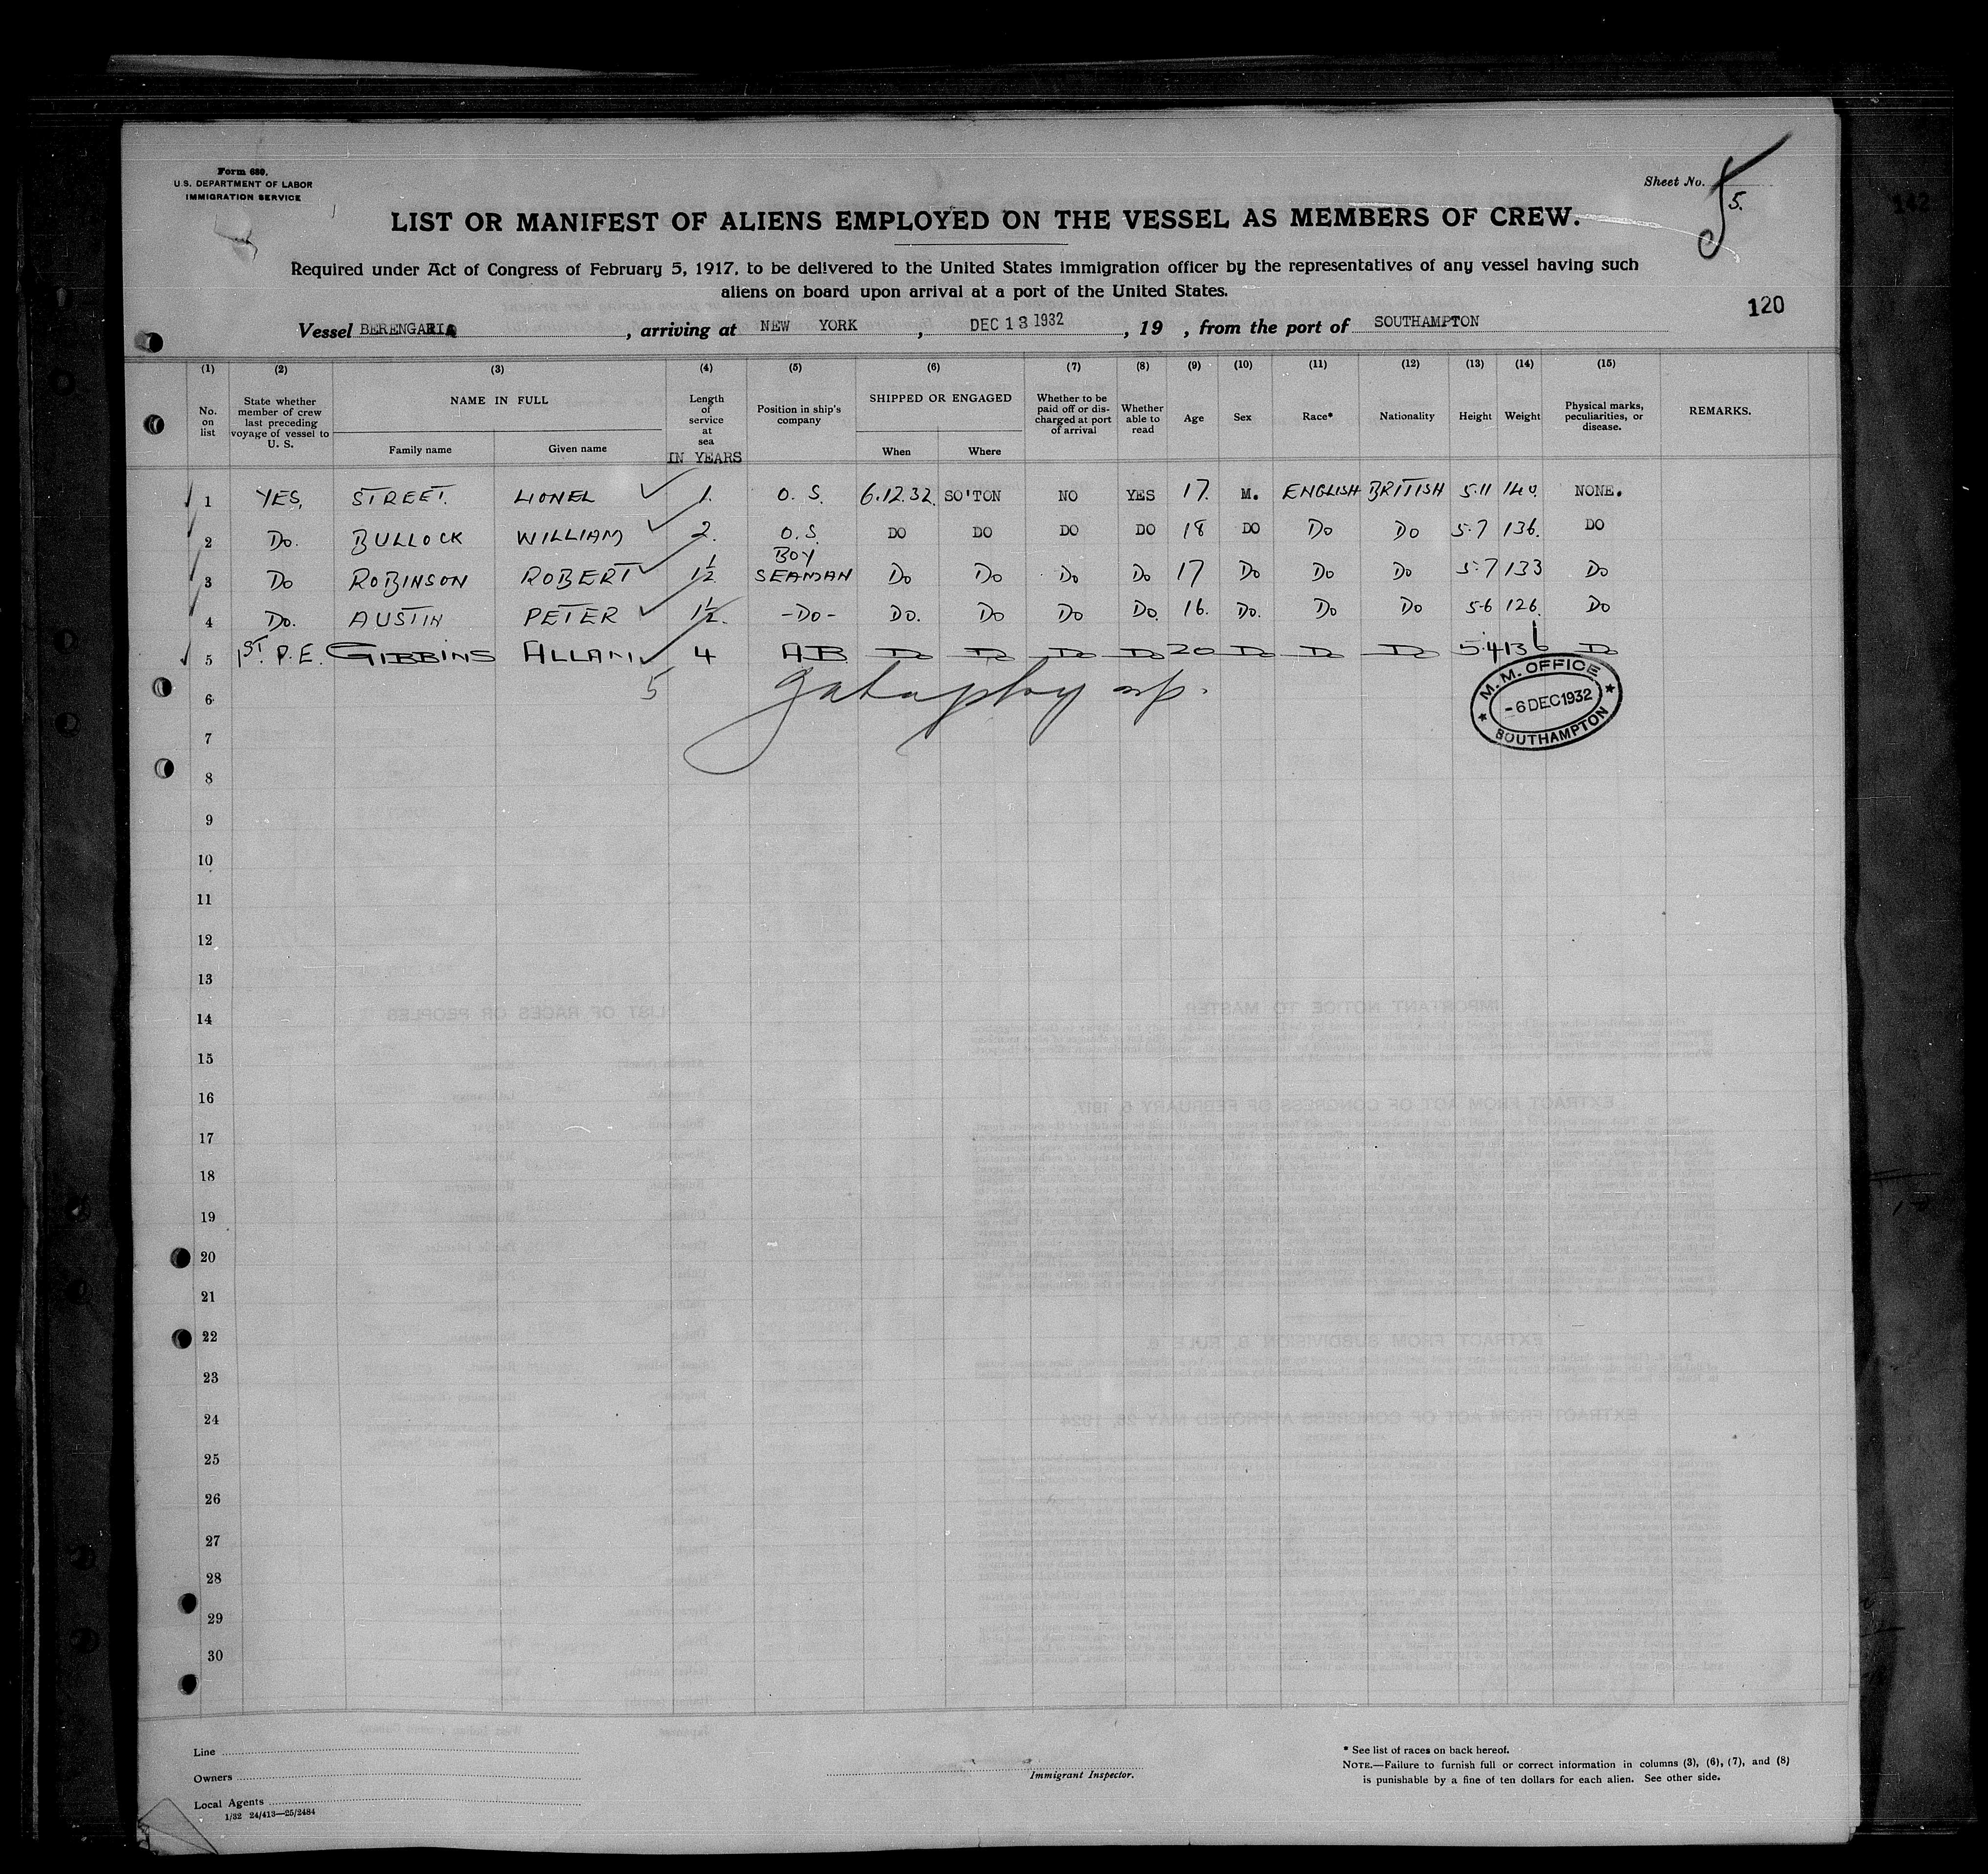 Form 680.
U.S. DEPARTMENT OF LABOR
IMMIGRATION SERVICE
Sheet No. 5.
142
LIST OR MANIFEST OF ALIENS EMPLOYED ON THE VESSEL AS MEMBERS OF CREW.
Required under Act of Congress of February 5, 1917, to be delivered to the United States immigration officer by the representatives of any vessel having such
aliens on board upon arrival at a port of the United States.
120
Vessel BERENGARIA, arriving at NEW YORK, DEC 13 1932, 19 , from the port of SOUTHAMPTON
(1) (2) (3) (4) (5) (6) (7) (8) (9) (10) (11) (12) (13) (14) (15)
No. on list State whether member of crew last preceding voyage of vessel to U. S. NAME IN FULL Family name Given name Length of service at sea IN YEARS Position in ship's company SHIPPED OR ENGAGED When Where Whether to be paid off or discharged at port of arrival Whether able to read Age Sex Race* Nationality Height Weight Physical marks, peculiarities, or disease. REMARKS.
1 YES. STREET. LIONEL 1. O. S. 6.12.32. SO'TON NO YES 17. M. ENGLISH BRITISH 5.11 140. NONE.
2 DO. BULLOCK WILLIAM 2. O.S. DO DO DO DO 18 DO DO DO 5.7 136. DO
3 DO ROBINSON ROBERT 1½ BOY SEAMAN DO DO DO DO 17 DO DO DO 5.7 133 DO
4 DO. AUSTIN PETER 1½. -DO- DO. DO DO DO. 16. DO. DO DO 5-6 126. DO
5 1ST. P.E. GIBBINS ALLAN 4 AB DO DO DO DO 20 DO DO DO 5.4 136 DO
5
6
M. M. OFFICE
-6 DEC 1932
SOUTHAMPTON
7
8
9
10
11
12
13
14
15
16
17
18
19
20
21
22
23
24
25
26
27
28
29
30
Line
Owners
Local Agents
1/32 24/413—25/2484
Immigrant Inspector.
* See list of races on back hereof.
NOTE.—Failure to furnish full or correct information in columns (3), (6), (7), and (8)
is punishable by a fine of ten dollars for each alien. See other side.